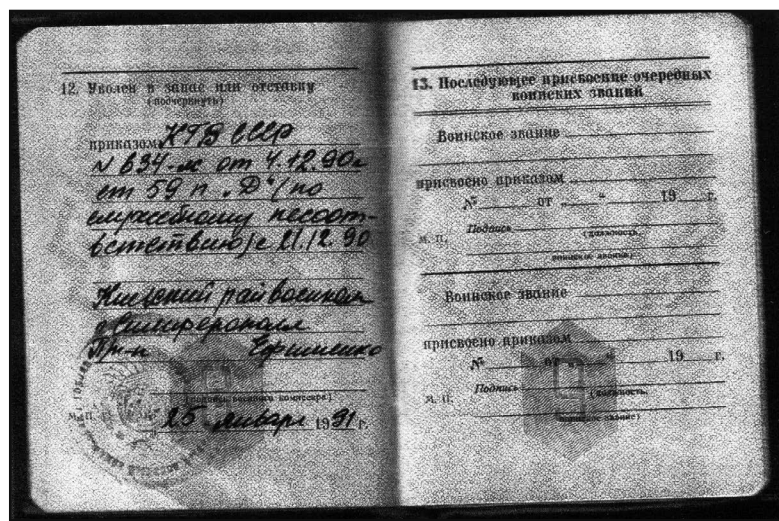 12. Уволен в запас или отставку
(подчеркнуть)
приказом КГБ СССР
N 634-лс от 4.12.90г
ст 59 п. „Д“ (по
служебному несоот-
ветствию) с 21.12.90
Киевский райвоенком
г Симферополя
Пр-к Ефименко
(подпись военного комиссара)
М. П.
25 января 1991 г.
13. Последующее присвоение очередных
воинских званий
Воинское звание
присвоено приказом
№ от „ “ 19 г.
М. П. Подпись
(должность,
воинское звание)
Воинское звание
присвоено приказом
№ от „ “ 19 г.
М. П. Подпись
(должность,
воинское звание)